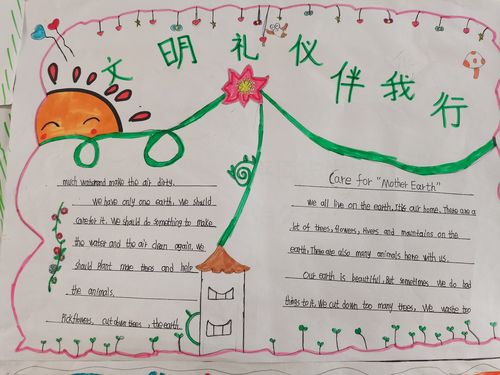 文明礼仪伴我行
much waterand make the air dirty.
We have only one earth. We should
care for it. We should do something to make
the water and the air clean again. We
should plant more trees and help
the animals.
Pickflowers, cutdown trees, the earth
Care for "Mother Earth"
We all live on the earth. It's our home. There are a
lot of trees, flowers, rivers and mountains on the
earth. There are also many animals here with us.
Our earth is beautiful. But sometimes we do bad
things to it. We cut down too many trees, We waste too